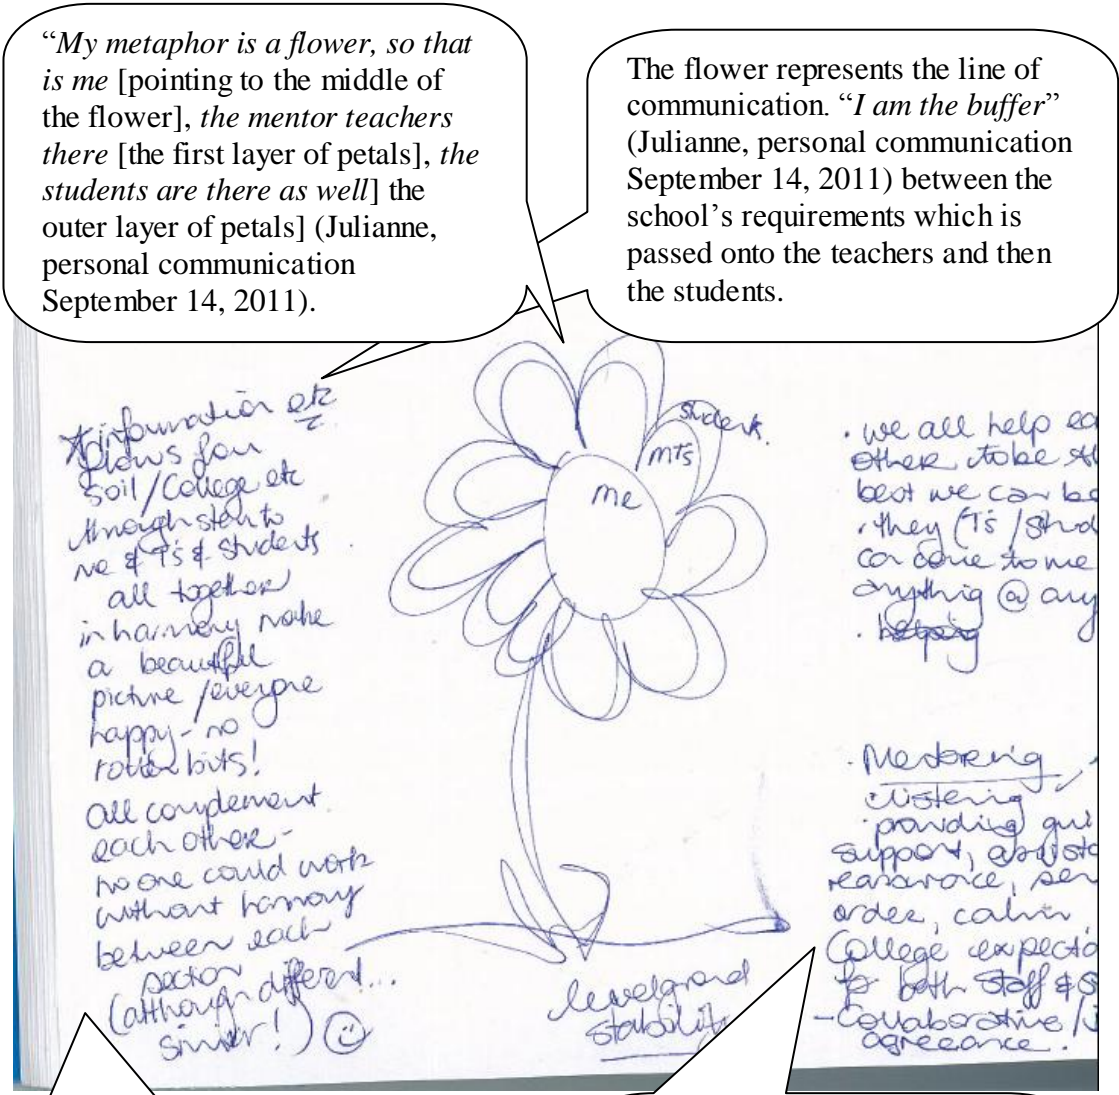 “My metaphor is a flower, so that
is me [pointing to the middle of
the flower], the mentor teachers
there [the first layer of petals], the
students are there as well] the
outer layer of petals] (Julianne,
personal communication
September 14, 2011).
The flower represents the line of
communication. “I am the buffer”
(Julianne, personal communication
September 14, 2011) between the
school’s requirements which is
passed onto the teachers and then
the students.
information etc
flows from
soil/College etc
through stem to
me & T's & Students
all together
in harmony make
a beautiful
picture/everyone
happy - no
rotten bits!
All complement
each other -
no one could work
without harmony
between each
sector
(although different...
similar!)
Student.
MTs
me
level ground
stability
. we all help ea
other to be th
best we can be
. they (T's/Stud
can come to me
anything @ any
. helping
. Mentoring
. listening
. providing gui
support, assista
reassurance, sen
order, calm
College expecta
for both Staff & S
- Collaborative/
agreeance.